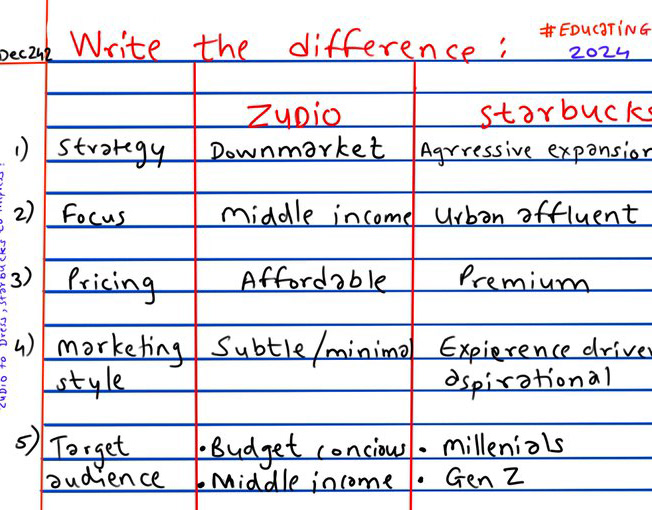 Dec242 Write the difference : #EDUCATING
2024
ZUDIO starbucks
1) strategy Downmarket Agrressive expansion
2) Focus middle income Urban affluent
3) Pricing Affordable Premium
4) marketing Subtle/minimal Expierence driven
style aspirational
5) Target •Budget concious • millenials
audience •Middle income • Gen Z
zudio to Dress, starbucks to impress!